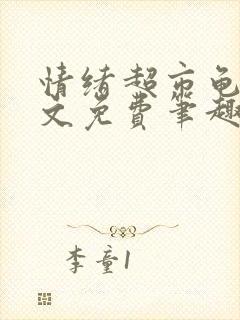 情绪超市龟
文免费笔趣
李童1